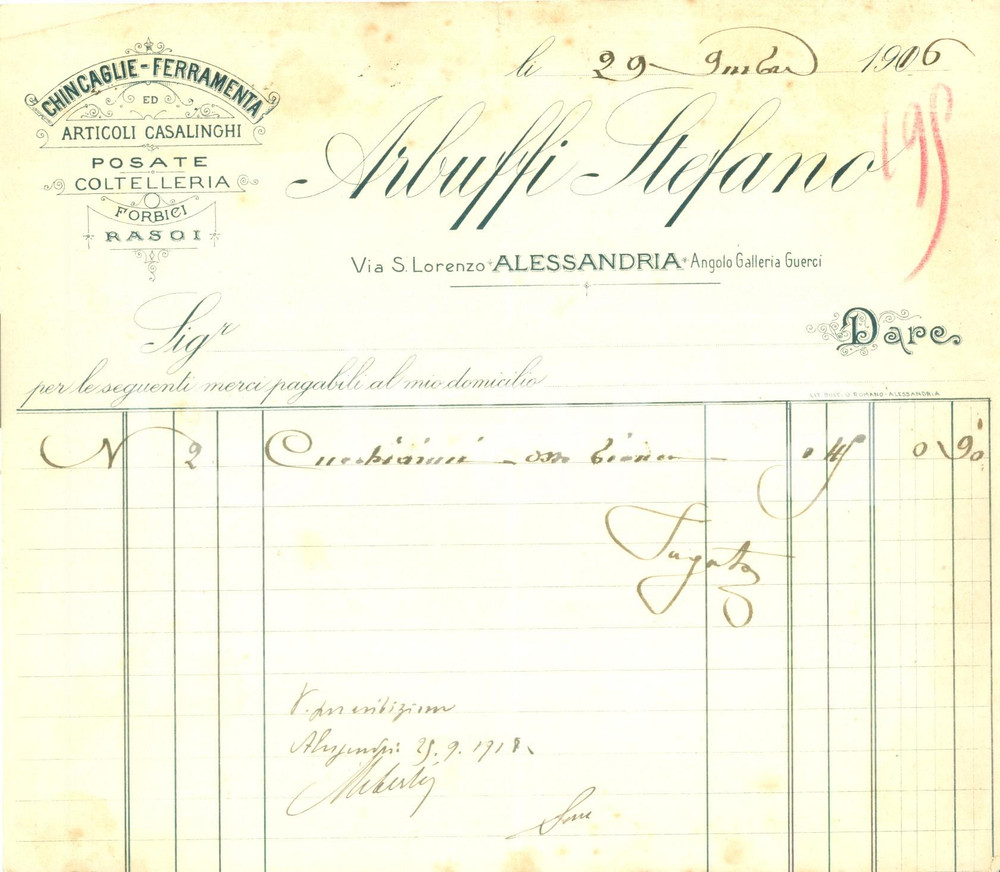 CHINCAGLIE-FERRAMENTA
ED
ARTICOLI CASALINGHI
POSATE
COLTELLERIA
FORBICI
RASOI
li 29 9mbre 1906
195
Arbuffi Stefano
Via S. Lorenzo ALESSANDRIA Angolo Galleria Guerci
Sigr
Dare
per le seguenti merci pagabili al mio domicilio
N 2 Cucchiaini osso bianco 0 45 0 90
Pagato
V. per esibizione